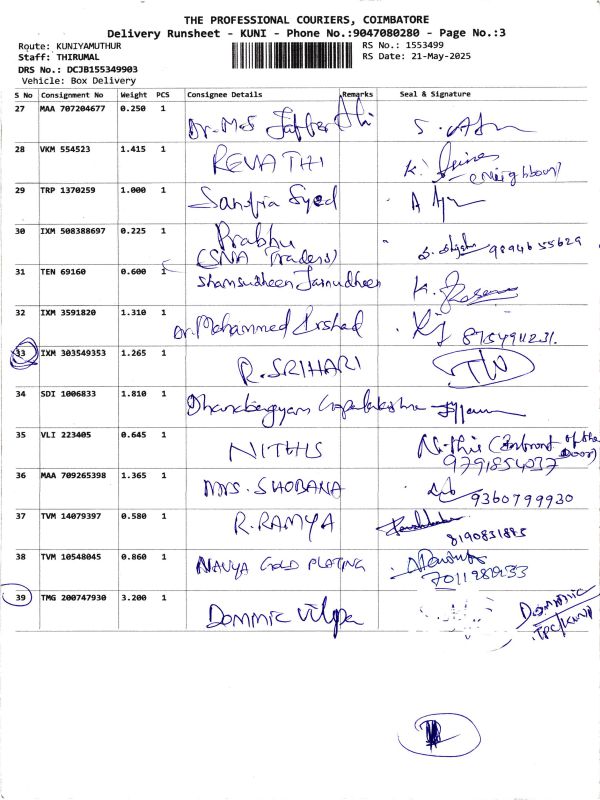 THE PROFESSIONAL COURIERS, COIMBATORE
Delivery Runsheet - KUNI - Phone No.:9047080280 - Page No.:3
Route: KUNIYAMUTHUR RS No.: 1553499
Staff: THIRUMAL RS Date: 21-May-2025
DRS No.: DCJB155349903
Vehicle: Box Delivery
S No Consignment No Weight PCS Consignee Details Remarks Seal & Signature
27 MAA 707204677 0.250 1 Dr. M.S Jaffer Ali
28 VKM 554523 1.415 1 REVATHI K.
29 TRP 1370259 1.000 1 Sanofia Syed A
30 IXM 508388697 0.225 1 Prabhu 9894655629
(SNA Traders)
31 TEN 69160 0.600 1 Shamsudheen Jainudheen K.
32 IXM 3591820 1.310 1 Dr. Mohammed Irshad
33 IXM 303549353 1.265 1 R. SRIHARI
34 SDI 1006833 1.810 1
35 VLI 223405 0.645 1 NITHIS Nithis of the Door)
9791854037
36 MAA 709265398 1.365 1 MRS. SHOBANA 9360799930
37 TVM 14079397 0.580 1 R. RAMYA
8190831885
38 TVM 10548045 0.860 1 NAVYA GOLD PLATING
39 TMG 200747930 3.200 1 Dommic Dominic
TPC/KUNI